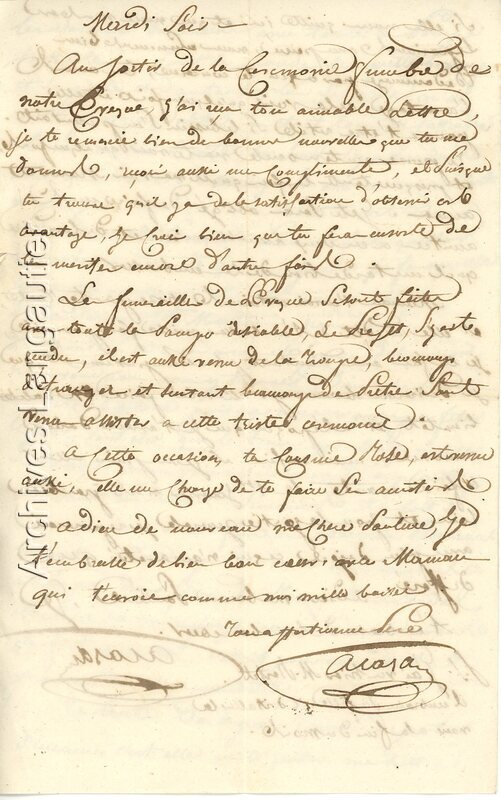 Mardi Soir
Au Sortir de la Ceremonie funebre de
notre Eveque j'ai reçu ton aimable Lettre,
je te remercie bien de bonnes nouvelles que tu me
donnes, reçoi aussi mes Compliments, et puisque
tu trouve qu'il y a de la satisfaction d'obtenir cet
avantage, je crois bien que tu feras ensorte de
meriter encore d'autre fois.
Les funerailles de l'Eveque se sont faites
avec toute la Pompe desirable, Le Prefet, S'y est
rendu, il est aussi venu de la troupe, beaucoup
d'etranger et surtout beaucoup de Pretre sont
venu assister a cette triste ceremonie.
a Cette occasion, ta Cousine Rose, est venue
aussi, elle me Charge de te faire Ses amitiés
adieu de nouveau ma Chere Pauline, Je
t'embrasse de bien bon coeur ainsi Maman
qui t'envoie comme moi mille baisers
Ton affectionné Pere
acasa
Archives-Langauffier